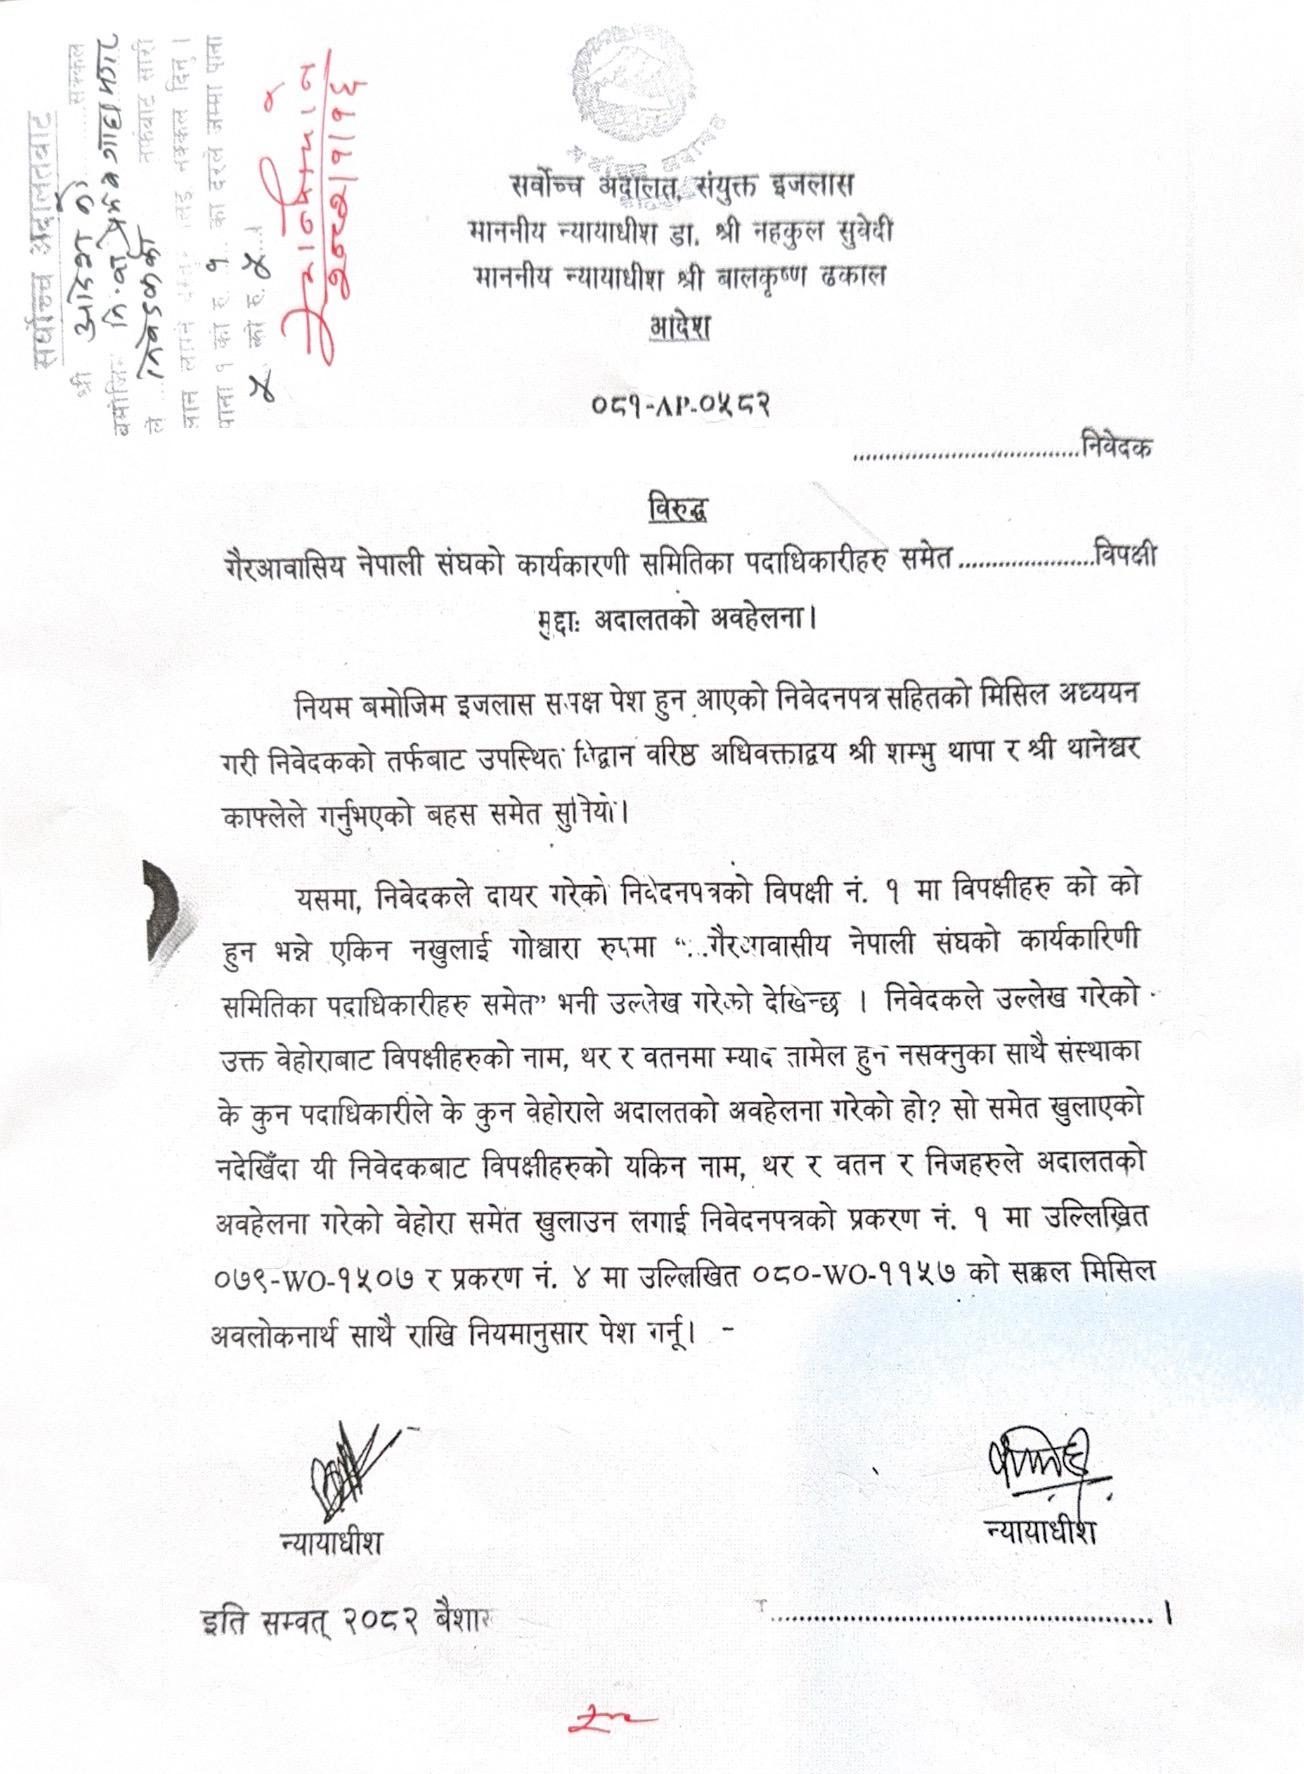 सर्वोच्च अदालतबाट
श्री आदेश को सक्कल
बमोजिम नि.वा. प्रेम
ले
पाना १ को रु. १ का दरले जम्मा पाना
५ को रु. ५
२०८२।१।१६
सर्वोच्च अदालत, संयुक्त इजलास
माननीय न्यायाधीश डा. श्री नहकुल सुवेदी
माननीय न्यायाधीश श्री बालकृष्ण ढकाल
आदेश
०८१-AP-०५८२
..................................निवेदक
विरुद्ध
गैरआवासिय नेपाली संघको कार्यकारणी समितिका पदाधिकारीहरु समेत .....................विपक्षी
मुद्दाः अदालतको अवहेलना।
नियम बमोजिम इजलास समक्ष पेश हुन आएको निवेदनपत्र सहितको मिसिल अध्ययन
गरी निवेदकको तर्फबाट उपस्थित विद्वान वरिष्ठ अधिवक्ताद्वय श्री शम्भु थापा र श्री थानेश्वर
काफ्लेले गर्नुभएको बहस समेत सुनियो।
यसमा, निवेदकले दायर गरेको निवेदनपत्रको विपक्षी नं. १ मा विपक्षीहरु को को
हुन भन्ने एकिन नखुलाई गोश्वारा रुपमा "...गैरआवासीय नेपाली संघको कार्यकारिणी
समितिका पदाधिकारीहरु समेत" भनी उल्लेख गरेको देखिन्छ । निवेदकले उल्लेख गरेको
उक्त वेहोराबाट विपक्षीहरुको नाम, थर र वतनमा म्याद तामेल हुन नसक्नुका साथै संस्थाका
के कुन पदाधिकारीले के कुन वेहोराले अदालतको अवहेलना गरेको हो? सो समेत खुलाएको
नदेखिँदा यी निवेदकबाट विपक्षीहरुको यकिन नाम, थर र वतन र निजहरुले अदालतको
अवहेलना गरेको वेहोरा समेत खुलाउन लगाई निवेदनपत्रको प्रकरण नं. १ मा उल्लिखित
०७९-WO-१५०७ र प्रकरण नं. ४ मा उल्लिखित ०८०-WO-११५७ को सक्कल मिसिल
अवलोकनार्थ साथै राखि नियमानुसार पेश गर्नू। -
न्यायाधीश
न्यायाधीश
इति सम्वत् २०८२ बैशाख ......................................................... ।